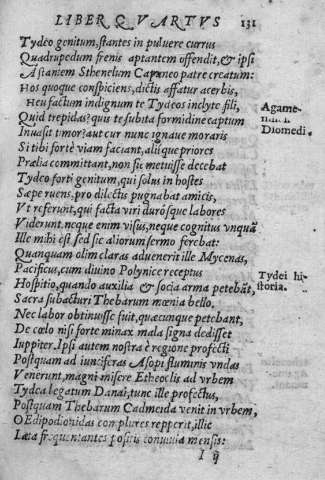 LIBER QVARTVS 131
Tydeo genitum, stantes in puluere currus
Quadrupedum frenis aptantem offendit, & ipsi
Astantem Sthenelum Capaneo patre creatum:
Hos quoque conspiciens, dictis affatur acerbis,
Heu factum indignum te Tydeos inclyte fili,
Quid trepidas? quis te subita formidine captum
Inuasit timor? aut cur nunc ignaue moraris
Si tibi forte viam faciant, alii que priores
Prælia committant, non sic metuisse decebat
Tydeo forti genitum, qui solus in hostes
Sæpe ruens, pro dilectis pugnabat amicis,
Vt referunt, qui facta viri durosque labores
Viderunt. neque enim visus, neque cognitus vnquā
Ille mihi est sed sic aliorum sermo ferebat:
Quanquam olim claras aduenerit ille Mycenas,
Pacificus, cum diuino Polynice receptus
Hospitio, quando auxilia & socia arma petebāt,
Sacra subacturi Thebarum mœnia bello.
Nec labor obtinuisse fuit, quæcunque petebant,
De cœlo nisi forte minax mala signa dedisset
Iuppiter. Ipsi autem nostra è regione profecti
Postquam ad iunciferas Asopi fluminis vndas
Venerunt, magni misere Etheoclis ad vrbem
Tydea legatum Danai, tunc ille profectus,
Postquam Thebarum Cadmeida venit in vrbem,
OEdipodionidas complures repperit, illic
Læta frequentantes positis conuiuia mensis:
I ij
Agame-
Diomedi.
Tydei hi
storia.